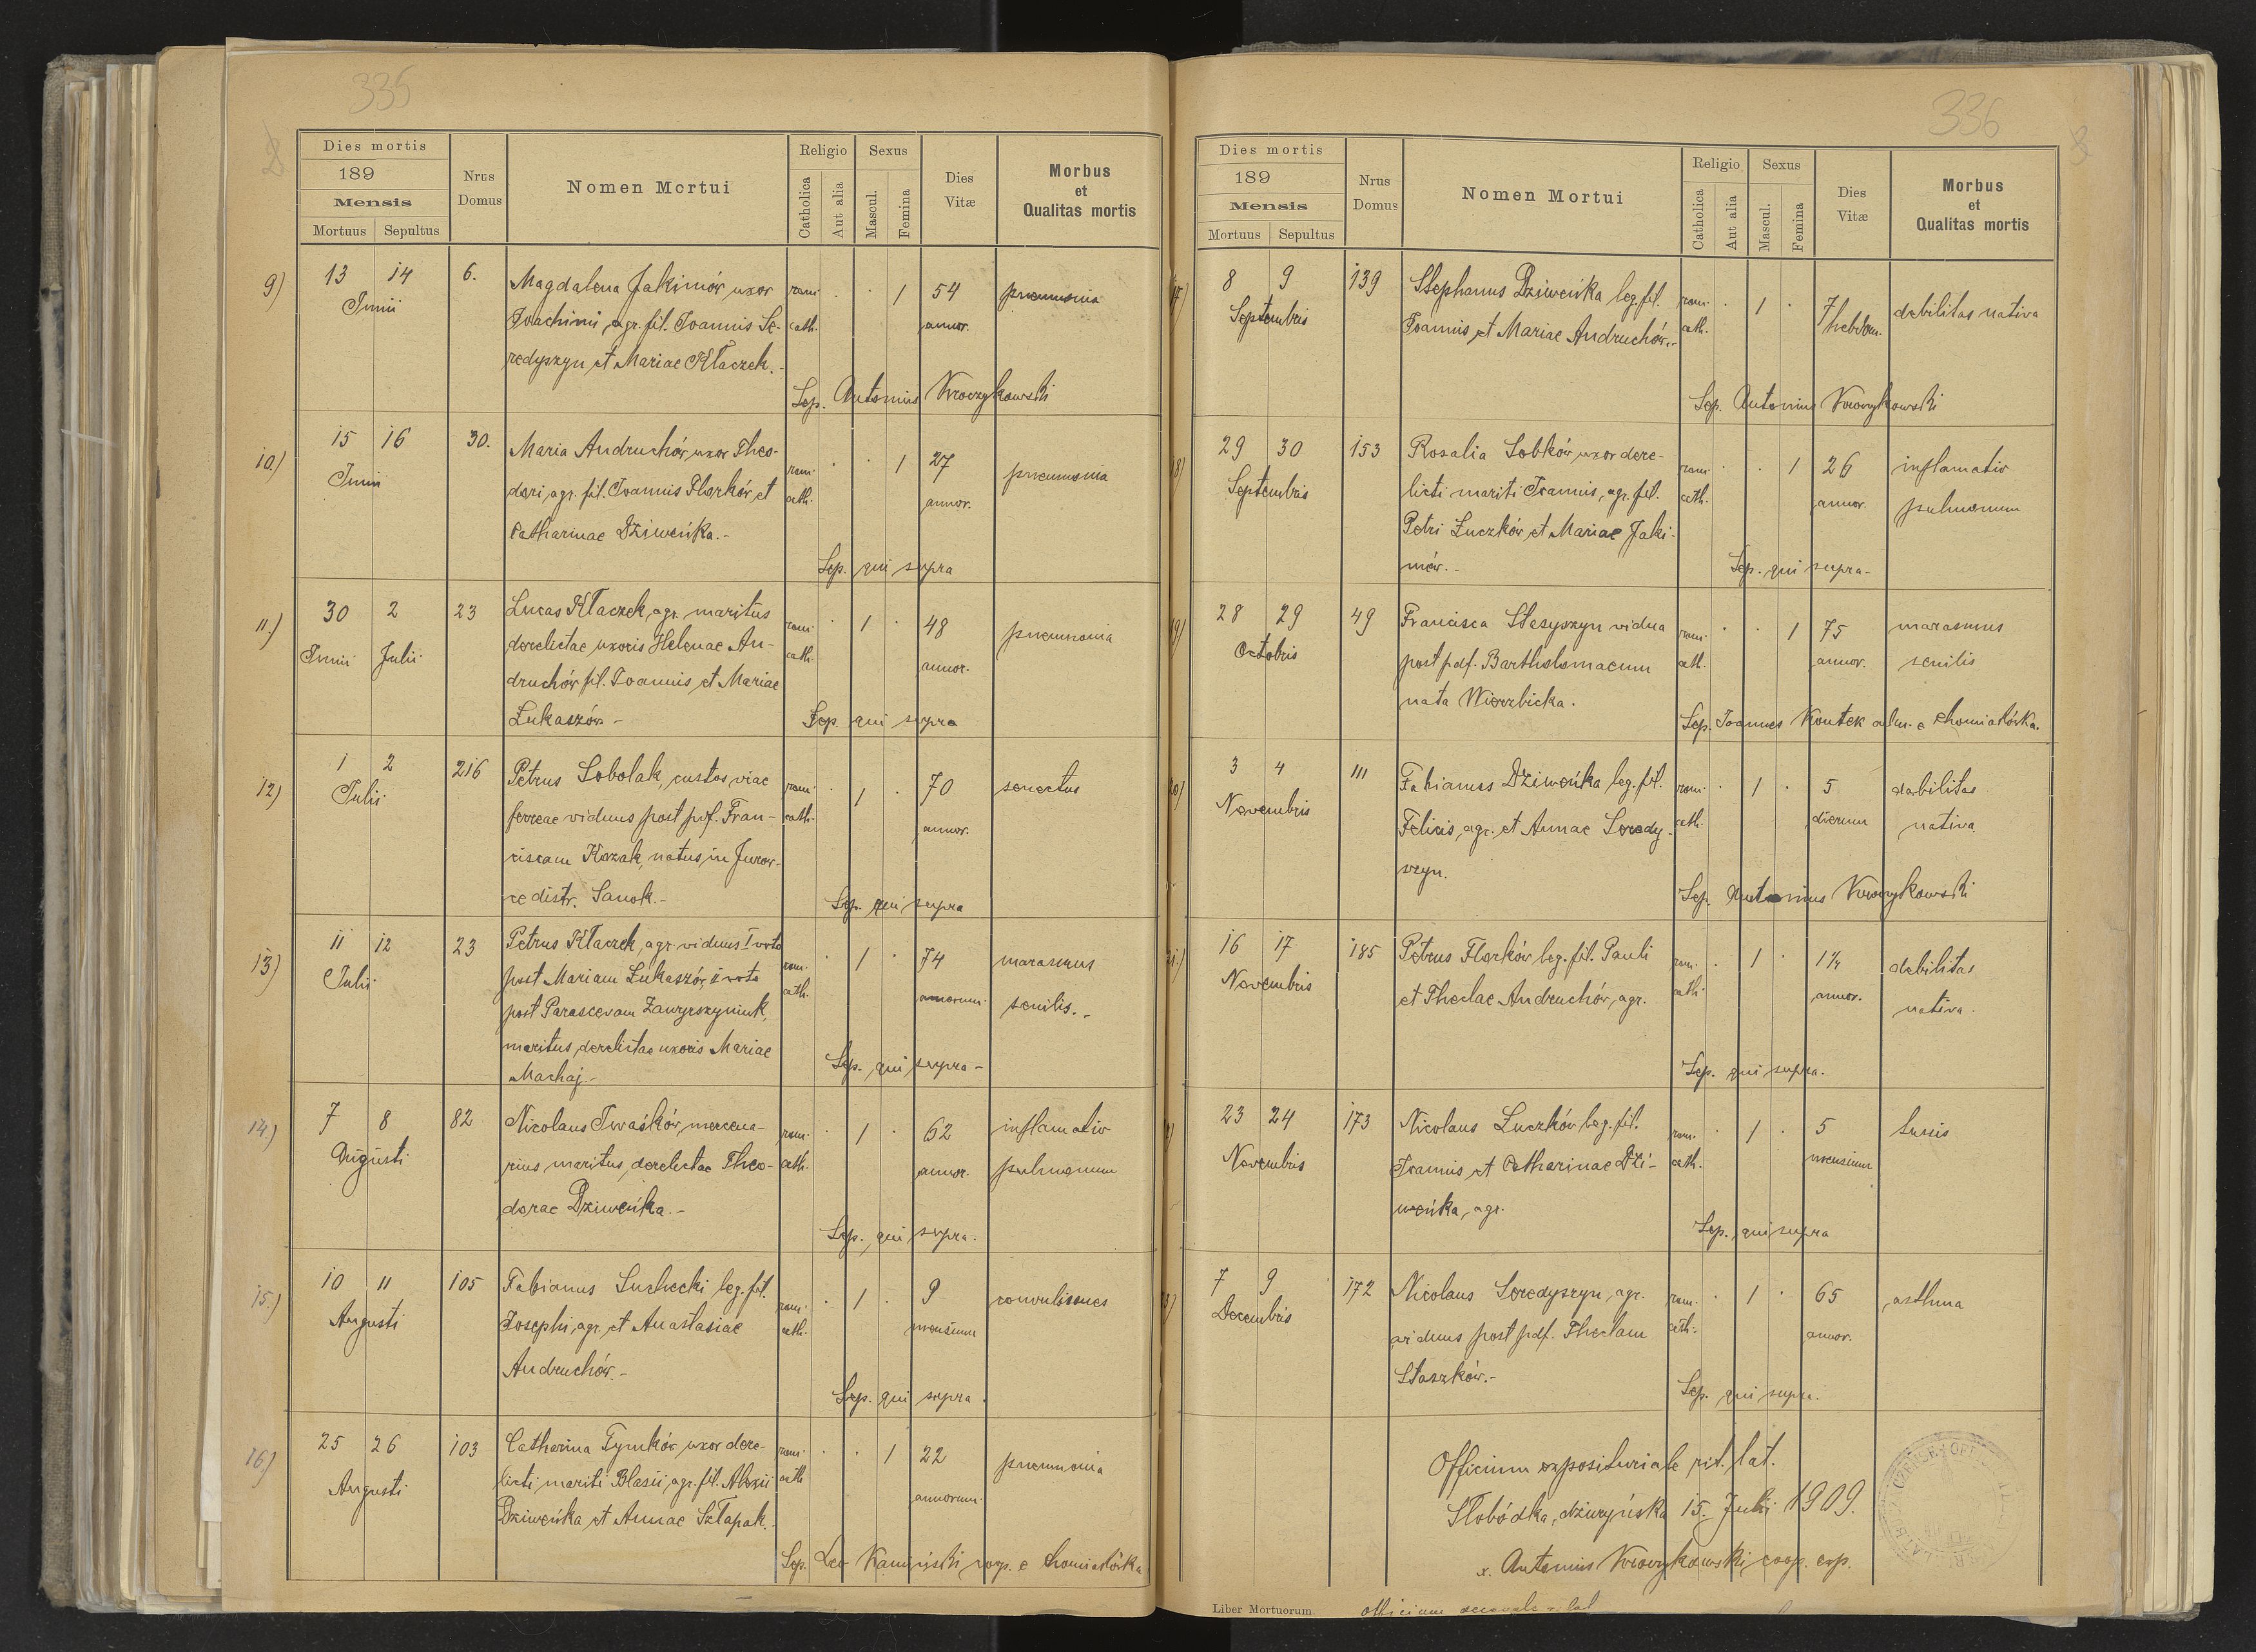 335
Dies mortis
189
Mensis
Mortuus Sepultus
Nrus
Domus
Nomen Mortui
Religio
Catholica
Aut alia
Sexus
Mascul.
Femina
Dies
Vitæ
Morbus
et
Qualitas mortis
9) 13 14 6. Magdalena Jakimów uxor rom. 1 54 pneumonia
Junii Joachimi agr. fil. Joannis Se- cath. annor.
redyszyn et Mariae Kłaczek.
Sep. Antonius
10.) 15 16 30. Maria Andruchów uxor Theo- rom. 1 27 pneumonia
Junii dori, agr. fil. Joannis Florków et cath. annor.
Catharinae Dziweńka.-
Sep. qui supra
11.) 30 2 23 Lucas Kłaczek, agr. maritus rom. 1 48 pneumonia
Junii Julii derelictae uxoris Helenae An- cath. annor.
druchów fil. Joannis et Mariae
Łukaszów - Sep. qui supra
12) 1 2 216 Petrus Sobolak, custos viae rom. 1 70 senectus
Julii ferreae viduus post pdf. Fran- cath. annor.
ciscam Kozak, natus in Jurow-
ce distr. Sanok.- Sep. qui supra
13) 11 12 23 Petrus Kłaczek, agr. viduus I voto rom. 1 74 marasmus
Julii post Mariam Łukaszów, II voto cath. annorum. senilis.-
post Parascevam
maritus derelictae uxoris Mariae
Machaj.- Sep. qui supra -
14.) 7 8 82 Nicolaus Iwaśków, mercena- rom. 1 62 inflamatio
Augusti rius, maritus derelictae Theo- cath. annor. pulmonum
dorae Dziweńka.-
Sep. qui supra.
15.) 10 11 105 Fabianus Suchecki leg. fil. rom. 1 9 convulsiones
Augusti Josephi, agr. et Anastasiae cath. mensium
Andruchów.-
Sep. qui supra.
16) 25 26 103 Catharina Tymków uxor dere- rom. 1 22 pneumonia
Augusti licti mariti Blasii, agr. fil. Alexii cath annorum.
Dziweńka et Annae Szłapak.
Sep. Leo Kamiński coop. e Chomiakówka
336
Dies mortis
189
Mensis
Mortuus Sepultus
Nrus
Domus
Nomen Mortui
Religio
Catholica
Aut alia
Sexus
Mascul.
Femina
Dies
Vitæ
Morbus
et
Qualitas mortis
17) 8 9 139 Stephanus Dziweńka leg. fil. rom. 1 7 debilitas nativa
Septembris Joannis et Mariae Andruchów.- cath. hebdom.
Sep. Antonius
18) 29 30 153 Rosalia Sobków uxor dere- rom. 1 26 inflamatio
Septembris licti mariti Joannis, agr. fil. cath. annor. pulmonum
Petri Łuczków et Mariae Jaki-
mów.- Sep. qui supra-
19) 28 29 49 Francisca Stesyszyn vidua rom. 1 75 marasmus
Octobris post pdf. Bartholomaeum cath. annor. senilis
nata Wierzbicka.
Sep. Joannes Kontek adm. e Chomiakówka.
20) 3 4 111 Fabianus Dziweńka leg. fil. rom. 1 5 debilitas
Novembris Felicis, agr. et Annae Seredy- cath. dierum nativa
szyn.
Sep. Antonius
21.) 16 17 185 Petrus Florków leg. fil. Pauli rom. 1 1¼ debilitas
Novembris et Theclae Andruchów, agr. cath. annor. nativa.
Sep. qui supra.
23 24 173 Nicolaus Łuczków leg. fil. rom. 1 5 tussis
Novembris Joannis et Catharinae Dzi- cath. mensium
weńka, agr.
Sep. qui supra
7 9 172 Nicolaus Seredyszyn, agr. rom. 1 65 asthma
Decembris viduus post pdf. Theclam cath. annor.
Staszków.-
Sep. qui supra.
Officium expositurale rit. lat.
Słobódka dżuryńska 15. Julii 1909.
x. Antonius coop. exp.
Liber Mortuorum.